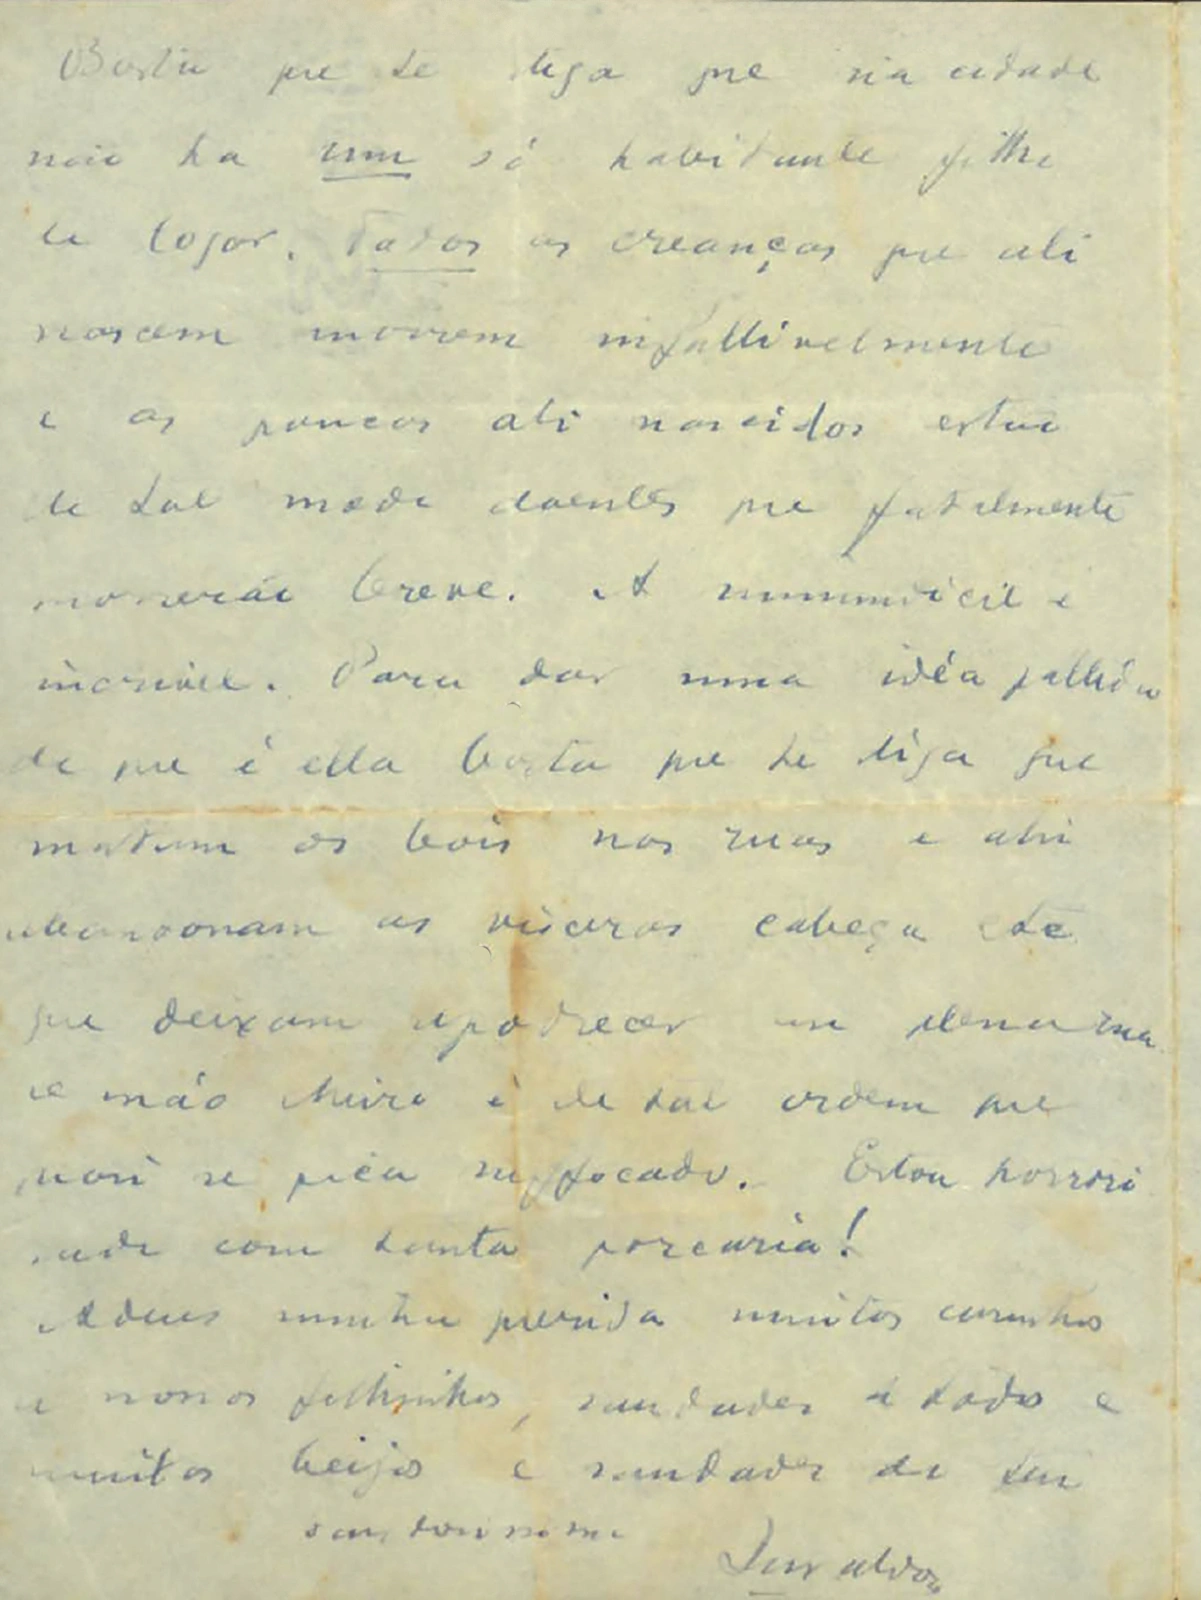 Basta que te diga que na cidade
não ha um só habitante filho
do logar. Todas as creanças que ali
nascem morrem infallivelmente
e os poucos ali nascidos estão
de tal modo doentes que fatalmente
morrerão breve. A immundicie é
incrivel. Para dar uma idéa pallida
do que é ella basta que te diga que
matam os bois nas ruas e ahi
abandonam as visceras cabeça etc
que deixam apodrecer em plena rua
e máo cheiro é de tal ordem que
quasi se fica suffocado. Estou horrori
sado com tanta porcaria!
Adeus minha querida muitos carinhos
a nossos filhinhos, saudades a todos e
muitos beijos e saudades do teu
saudosissimo